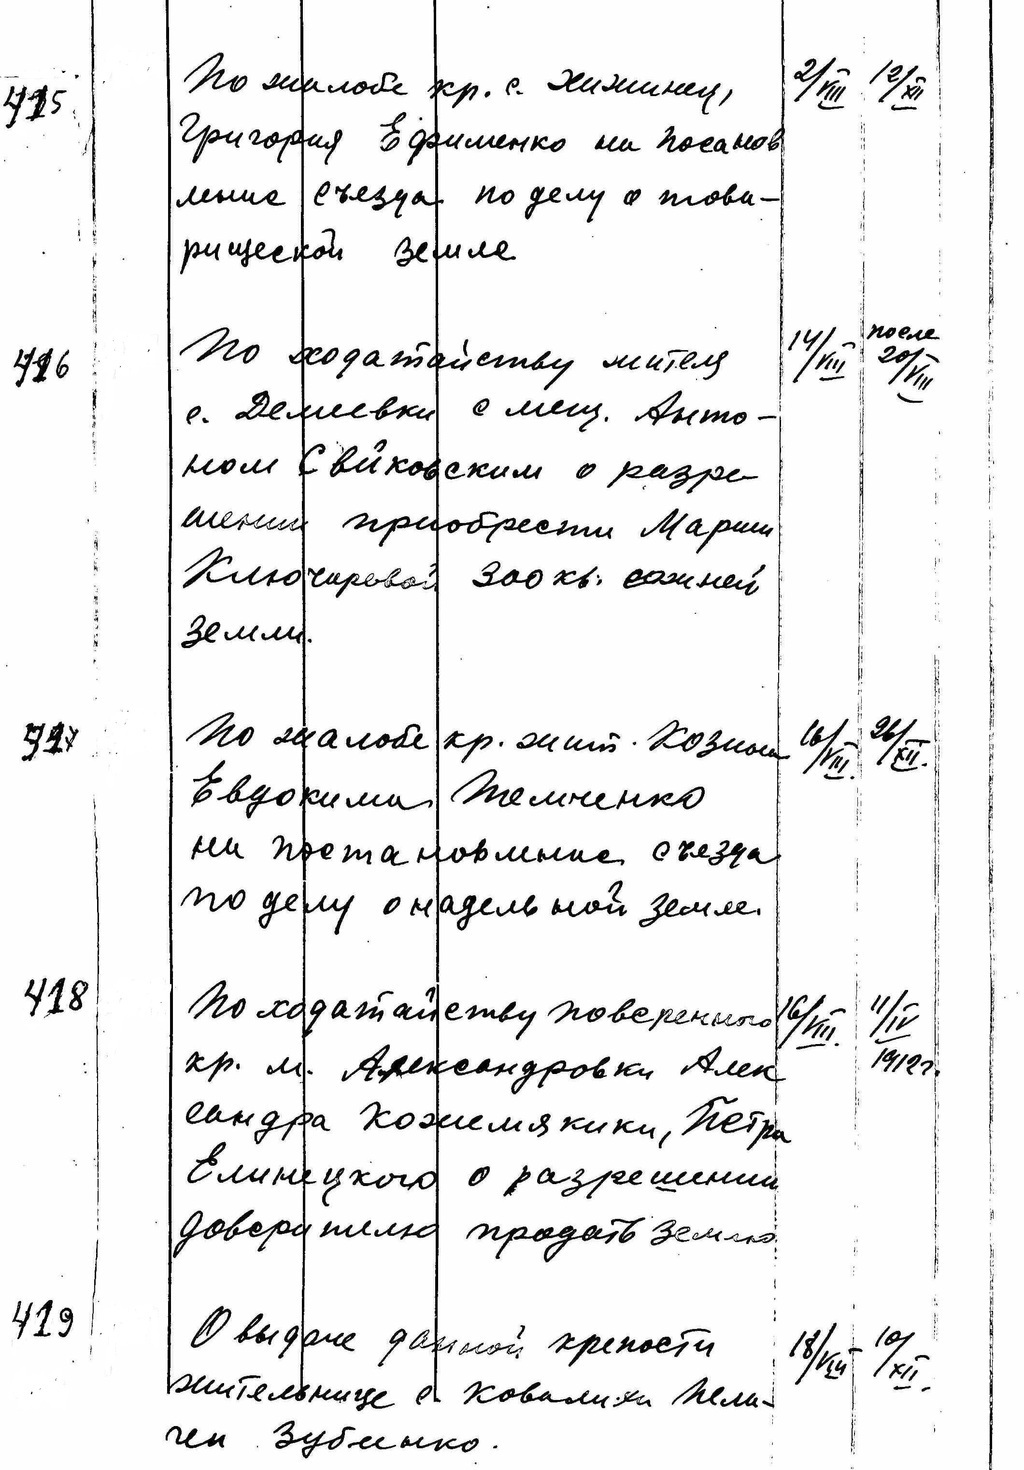 415 По жалобе кр. с. Хижинец, 2/VIII 12/XII
Григория Ефименко на посанов
ление съезда по делу о това-
рищеской земле
416 По ходатайству жителя 14/VIII после 20/VIII
с. Демиевки с мещ. Анто-
ном Свиковским о разре
шении приобрести Марии
Ключаревой 300 кв. сажней
земли.
417 По жалобе кр. жит. 16/VIII. 26/XII.
Евдокима Темченко
на постановление съезда
по делу о надельной земле.
418 По ходатайству поверенного 16/VIII. 11/IV 1912 г.
кр. м. Александровки Алек
сандра Кожемякики, Петра
Елинецкого о разрешении
доверителю продать землю
419 О выдаче данной крепости 18/VIII 10/XII.
жительнице с. Ковалихи Пела-
геи Зубенко.